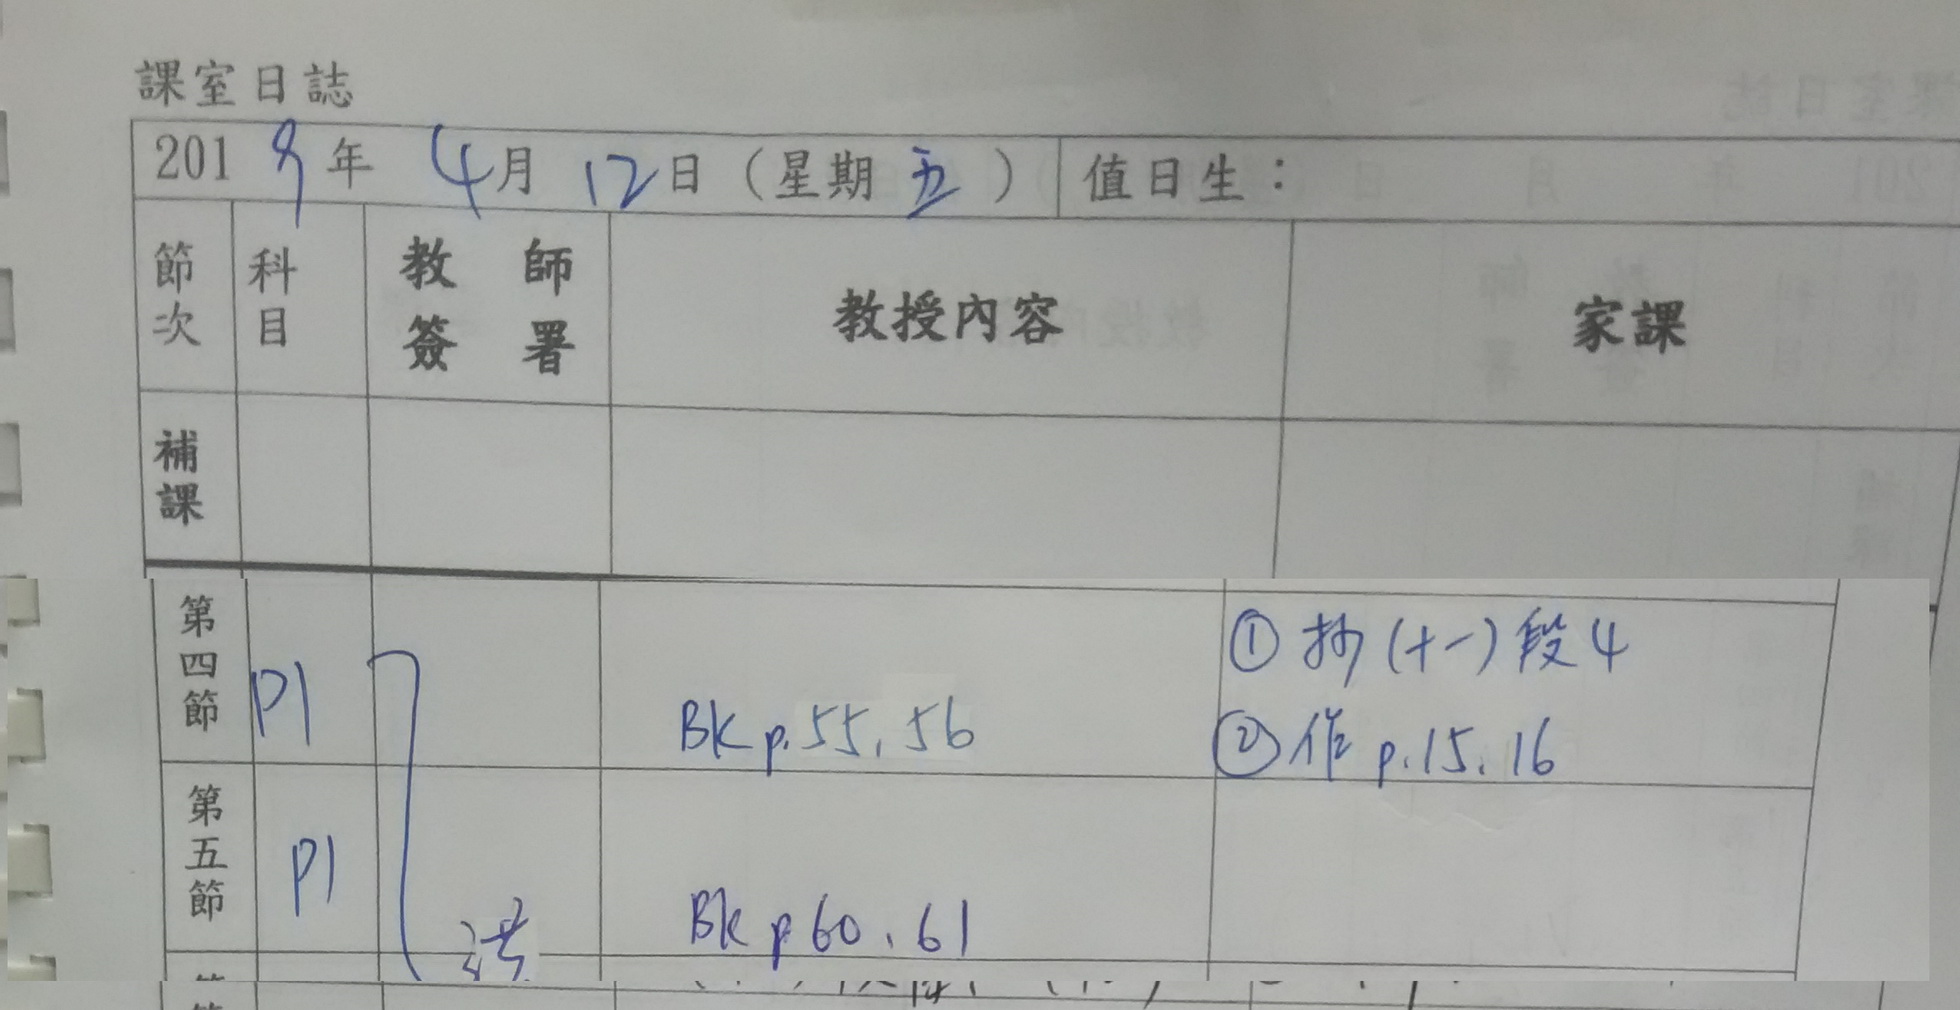 課室日誌
2019年 4月 12日（星期五） 值日生：
節次 科目 教師簽署 教授內容 家課
補課
第四節 P1 Bk p.55, 56 ① 抄 (十一) 段 4
② 作 p.15, 16
第五節 P1 Bk p 60, 61